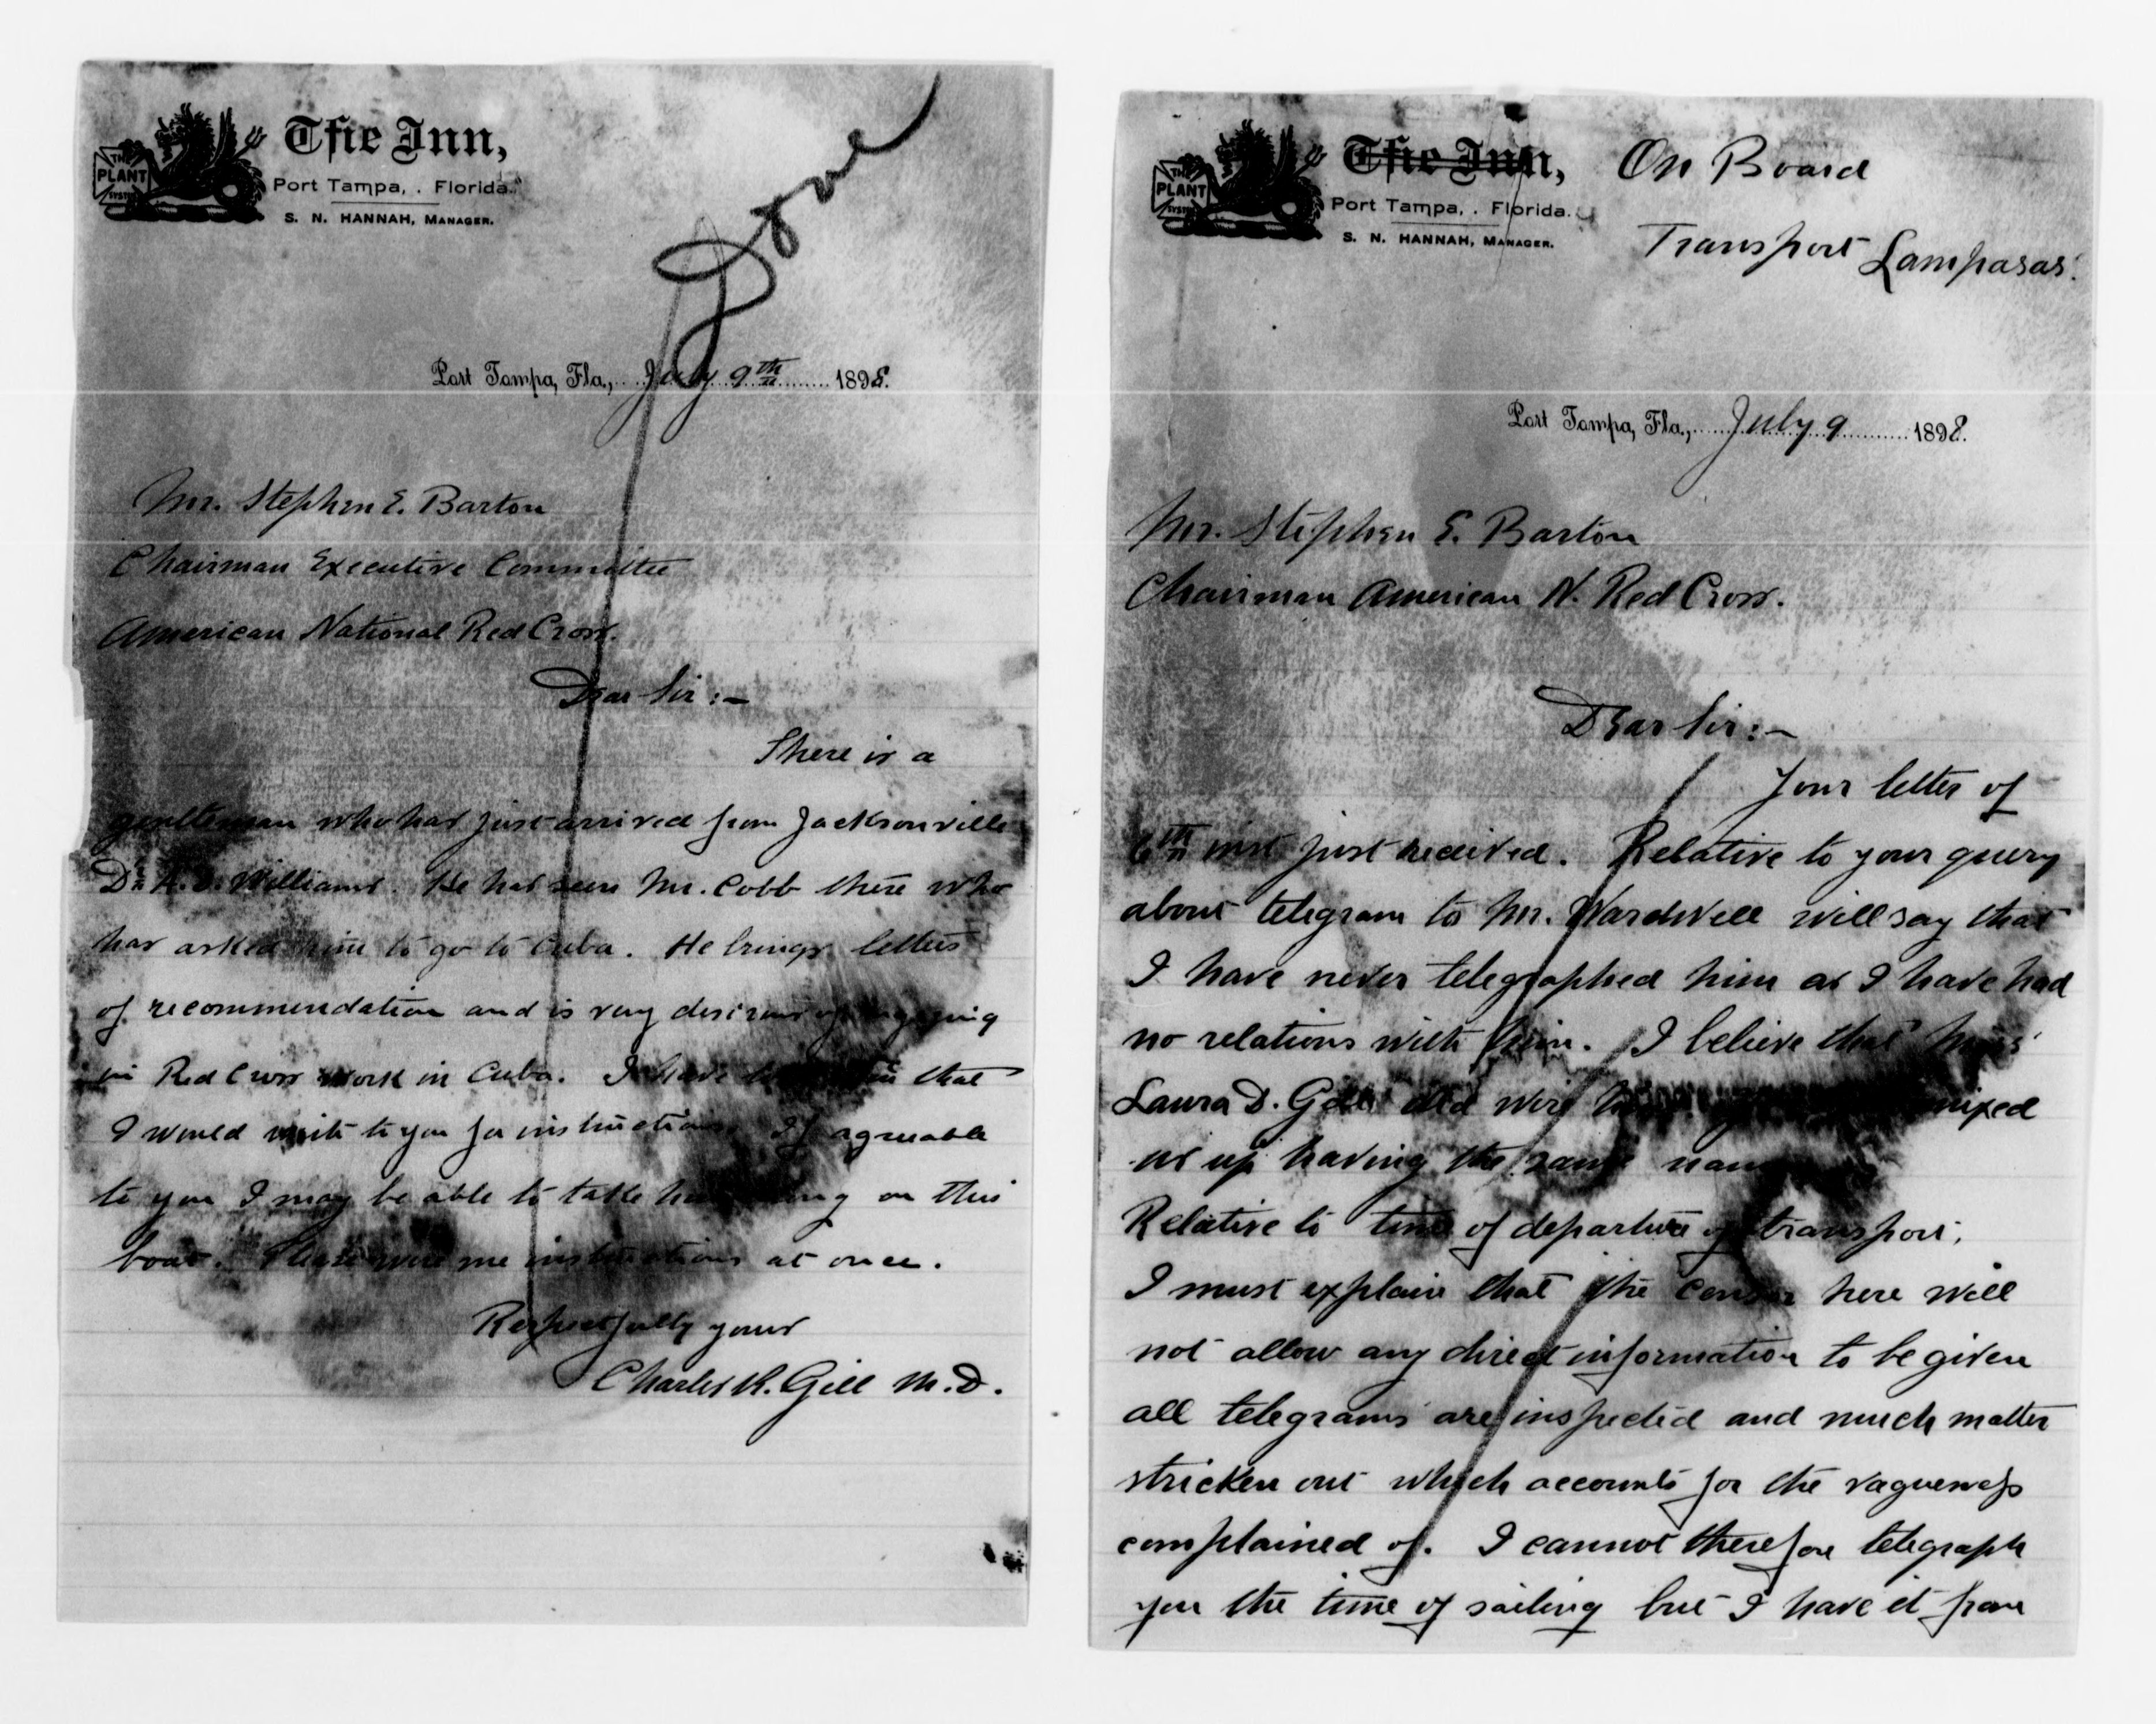 THE
PLANT
SYSTEM
The Inn,
Port Tampa, . Florida.
S. N. HANNAH, MANAGER.
Done
Port Tampa, Fla., July 9th 1898.
Mr. Stephen E. Barton
Chairman Executive Committee
American National Red Cross.
Dear Sir :-
There is a
gentleman who has just arrived from Jacksonville
Dr. A. S. Williams. He has seen Mr. Cobb there who
has asked him to go to Cuba. He brings letters
of recommendation and is very desirous of engaging
in Red Cross work in Cuba. I have that
I would write to you for instructions. If agreeable
to you I may be able to take him on this
boat. Please wire me instructions at once.
Respectfully yours
Charles R. Gill M.D.
THE
PLANT
SYSTEM
The Inn,
Port Tampa, . Florida.
S. N. HANNAH, MANAGER.
On Board
Transport Lampasas.
Port Tampa, Fla., July 9 1898.
Mr. Stephen E. Barton
Chairman American N. Red Cross.
Dear Sir :-
Your letter of
6th inst just received. Relative to your query
about telegram to Mr. Wardwell will say that
I have never telegraphed him as I have had
no relations with him. I believe that Miss
Laura D. Gill did wire mixed
us up having the same name
Relative to time of departure of transport;
I must explain that the censor here will
not allow any direct information to be given
all telegrams are inspected and much matter
stricken out which accounts for the vagueness
complained of. I cannot therefore telegraph
you the time of sailing but I have it from